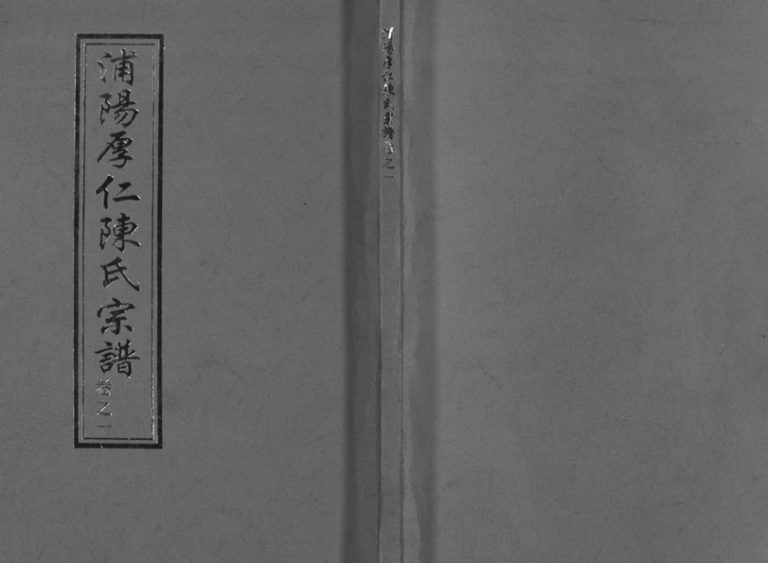 浦陽厚仁陳氏宗譜 卷之一
浦陽厚仁陳氏宗譜卷之一